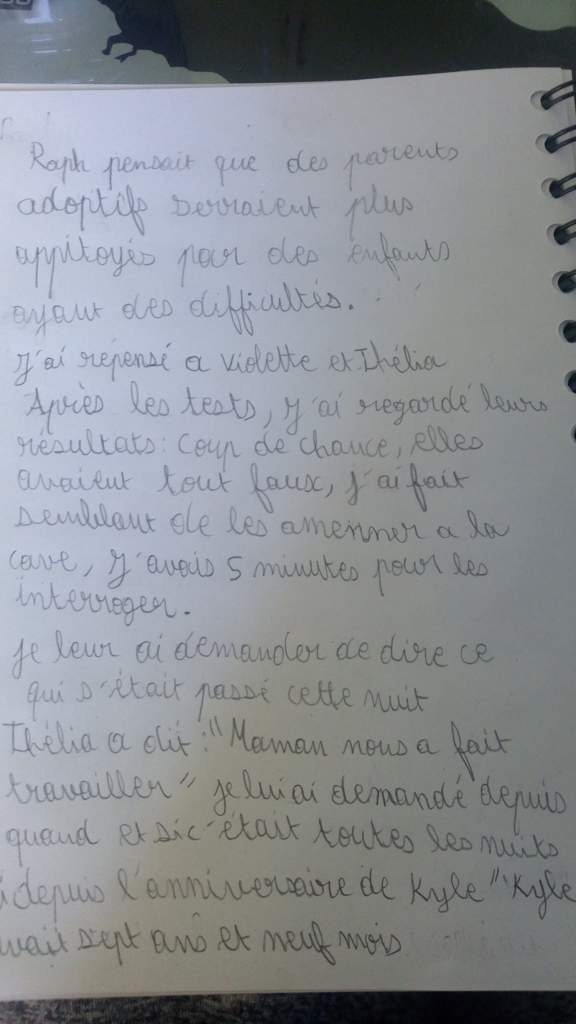 Raph pensait que des parents
adoptifs serraient plus
appitoyés par des enfants
ayant des difficultés.
J'ai repensé a Violette et Thélia
Après les tests, j'ai regardé leurs
résultats: coup de chance, elles
avaient tout faux, j'ai fait
semblant de les amenner a la
cave, j'avais 5 minutes pour les
interroger.
je leur ai demander de dire ce
qui s'était passé cette nuit
Thélia a dit: "Maman nous a fait
travailler" je lui ai demandé depuis
quand et si c'était toutes les nuits
depuis l'anniversaire de Kyle" Kyle
avait sept ans et neuf mois